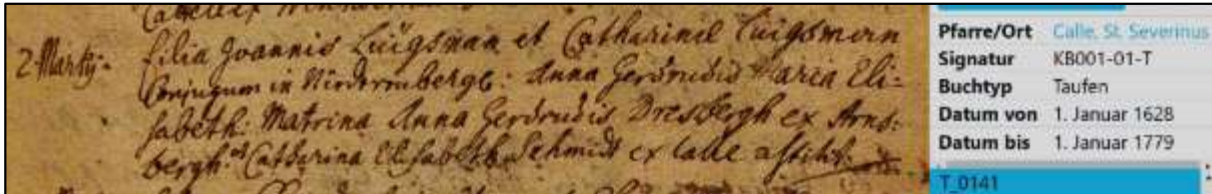 2 Martij. filia Joannis Lüigsman et Catharinæ Luigsmern
Conjugum in Niederenberge: Anna Gerdrudis Maria Eli-
sabeth: Matrina Anna Gerdrudis Dresbergh ex Arns-
bergh. et Catharina Elisabeth Schmidt ex calle astitit.
Pfarre/Ort Calle, St. Severinus
Signatur KB001-01-T
Buchtyp Taufen
Datum von 1. Januar 1628
Datum bis 1. Januar 1779
T_0141